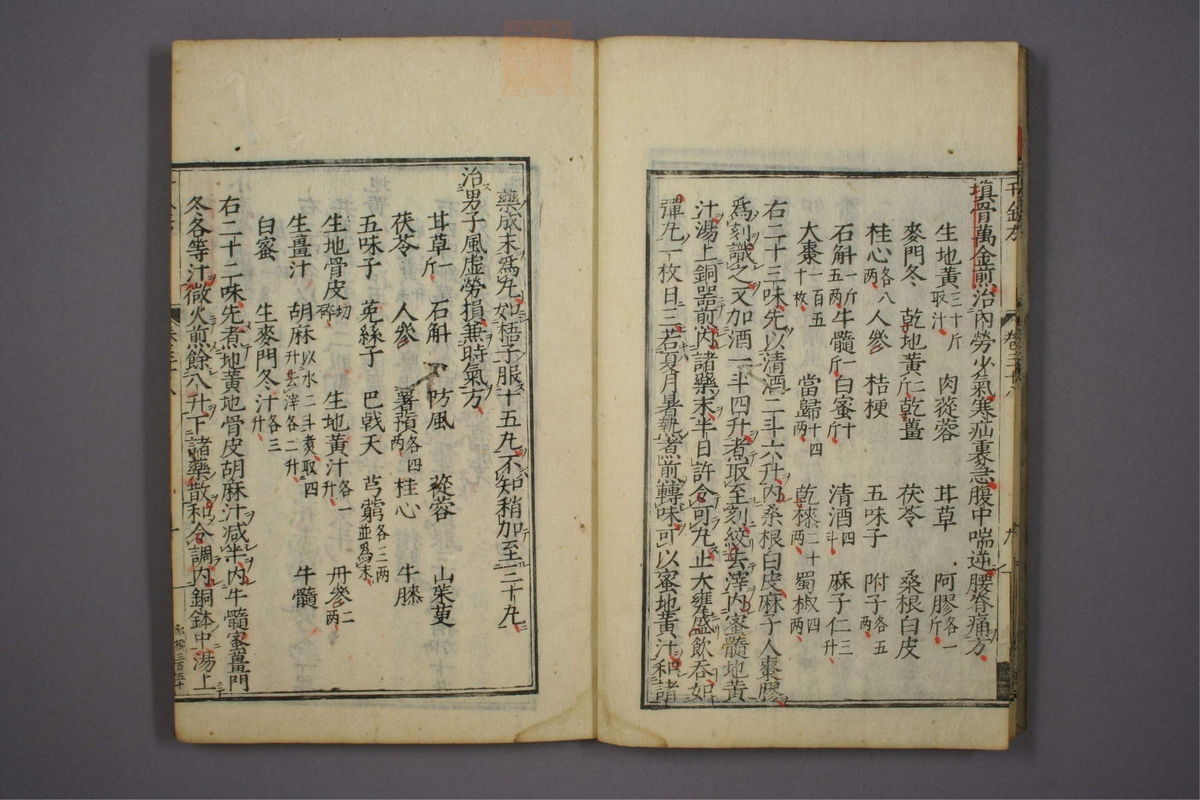 填骨萬金煎治內勞少氣寒疝裏急腹中喘逆腰脊痛方
生地黃三十斤取汁 肉蓯蓉 甘草 阿膠各一斤
麥門冬 乾地黃斤 乾薑 茯苓 桑根白皮
桂心各八兩 人參 桔梗 五味子 附子各五兩
石斛一斤五兩 牛髓一斤 白蜜十斤 清酒四斗 麻子仁三升
大棗一百五十枚 當歸十四兩 乾㯃二十兩 蜀椒四兩
右二十三味先以清酒二斗六升內桑根白皮麻子人棗膠
為刻識之又加酒一斗四升煮取至刻絞去滓內蜜髓地黃
汁湯上銅器煎內諸藥末半日許令可丸止大甕盛飲吞如
彈丸一枚日三若夏月暑熱煮煎轉味可以蜜地黃汁和諸
藥成末為丸如梧子服十五丸不知稍加至三十丸
治男子風虛勞損兼時氣方
甘草一斤 石斛 防風 蓯蓉 山茱萸
茯苓 人參 薯蕷各四兩 桂心 牛膝
五味子 菟絲子 巴戟天 芎藭各三兩並為末
生地骨皮切碎 生地黃汁各一升 丹參二兩
生薑汁 胡麻以水二斗煮取四升去滓各二升 牛髓
白蜜 生麥門冬汁各三升
右二十二味先煮地黃地骨皮胡麻汁減半內牛髓蜜薑門
冬各等汁微火煎餘八升下諸藥散和令調內銅鉢中湯上
千金方
卷三十八